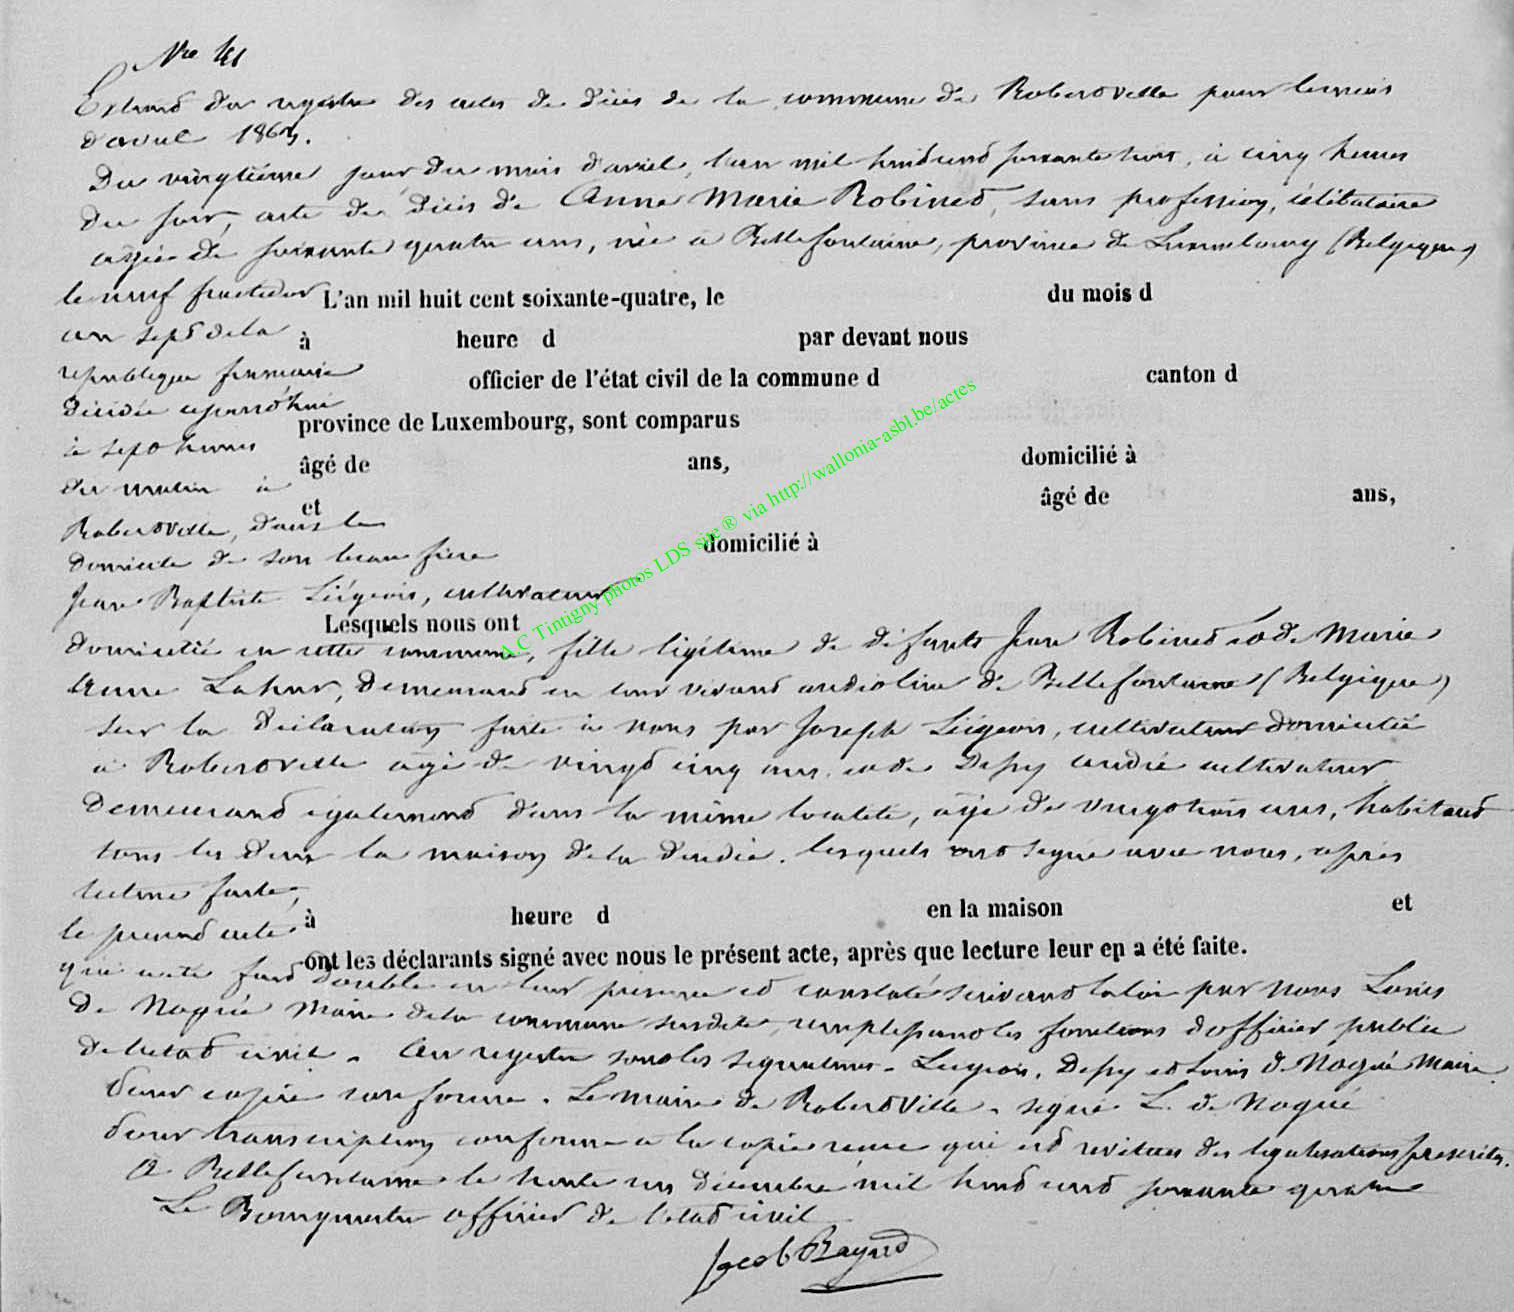 Nro 41
Extrait du registre des actes de décès de la commune de Robertville pour le mois
d'avril 1863.
Du vingtième jour du mois d'avril, l'an mil huit cent soixante trois, à cinq heures
du soir, acte de décès de Anne Marie Robinet, sans profession, célibataire
agée de soixante quatre ans, née à Bellefontaine, province de Luxembourg (Belgique)
le neuf fructidor
L'an mil huit cent soixante-quatre, le du mois d
an sept de la
à heure d par devant nous
république française
officier de l'état civil de la commune d canton d
décédée aujourd'hui
province de Luxembourg, sont comparus
à sept heures
âgé de ans, domicilié à
du matin à
et âgé de ans,
Robertville, dans le
domicile de son beau frère
domicilié à
Jean Baptiste Liégeois, cultivateur
Lesquels nous ont
domicilié en cette commune, fille légitime de défunts Jean Robinet et de Marie
Anne Lahur, demeurant en leur vivant audit lieu de Bellefontaine (Belgique)
sur la déclaration faite à nous par Joseph Liégeois, cultivateur domicilié
à Robertville agé de vingt cinq ans, et de Depy cultivateur
demeurant également dans la même localité, agé de vingt trois ans, habitant
tous les deux la maison de la décédée. lesquels ont signé avec nous, après
lecture faite,
à heure d en la maison et
le présent acte
ont les déclarants signé avec nous le présent acte, après que lecture leur en a été faite.
qui a été fait double en leur présence et constaté suivant la loi par nous Louis
de Nogué Maire de la commune susdite, remplissant les fonctions d'officier public
de l'état civil. Au registre sont les signatures. Liégeois, Depy et Louis de Nogué Maire.
Pour copie conforme. Le maire de Robertville. signé L. de Nogué
Pour transcription conforme à la copie reçue qui est revêtue des légalisations prescrites.
A Bellefontaine le trente un décembre mil huit cent soixante quatre
Le Bourgmestre officier de l'état civil
Jacob Bayard
A.C Tintigny photos LDS site ® via http://wallonia-asbl.be/actes